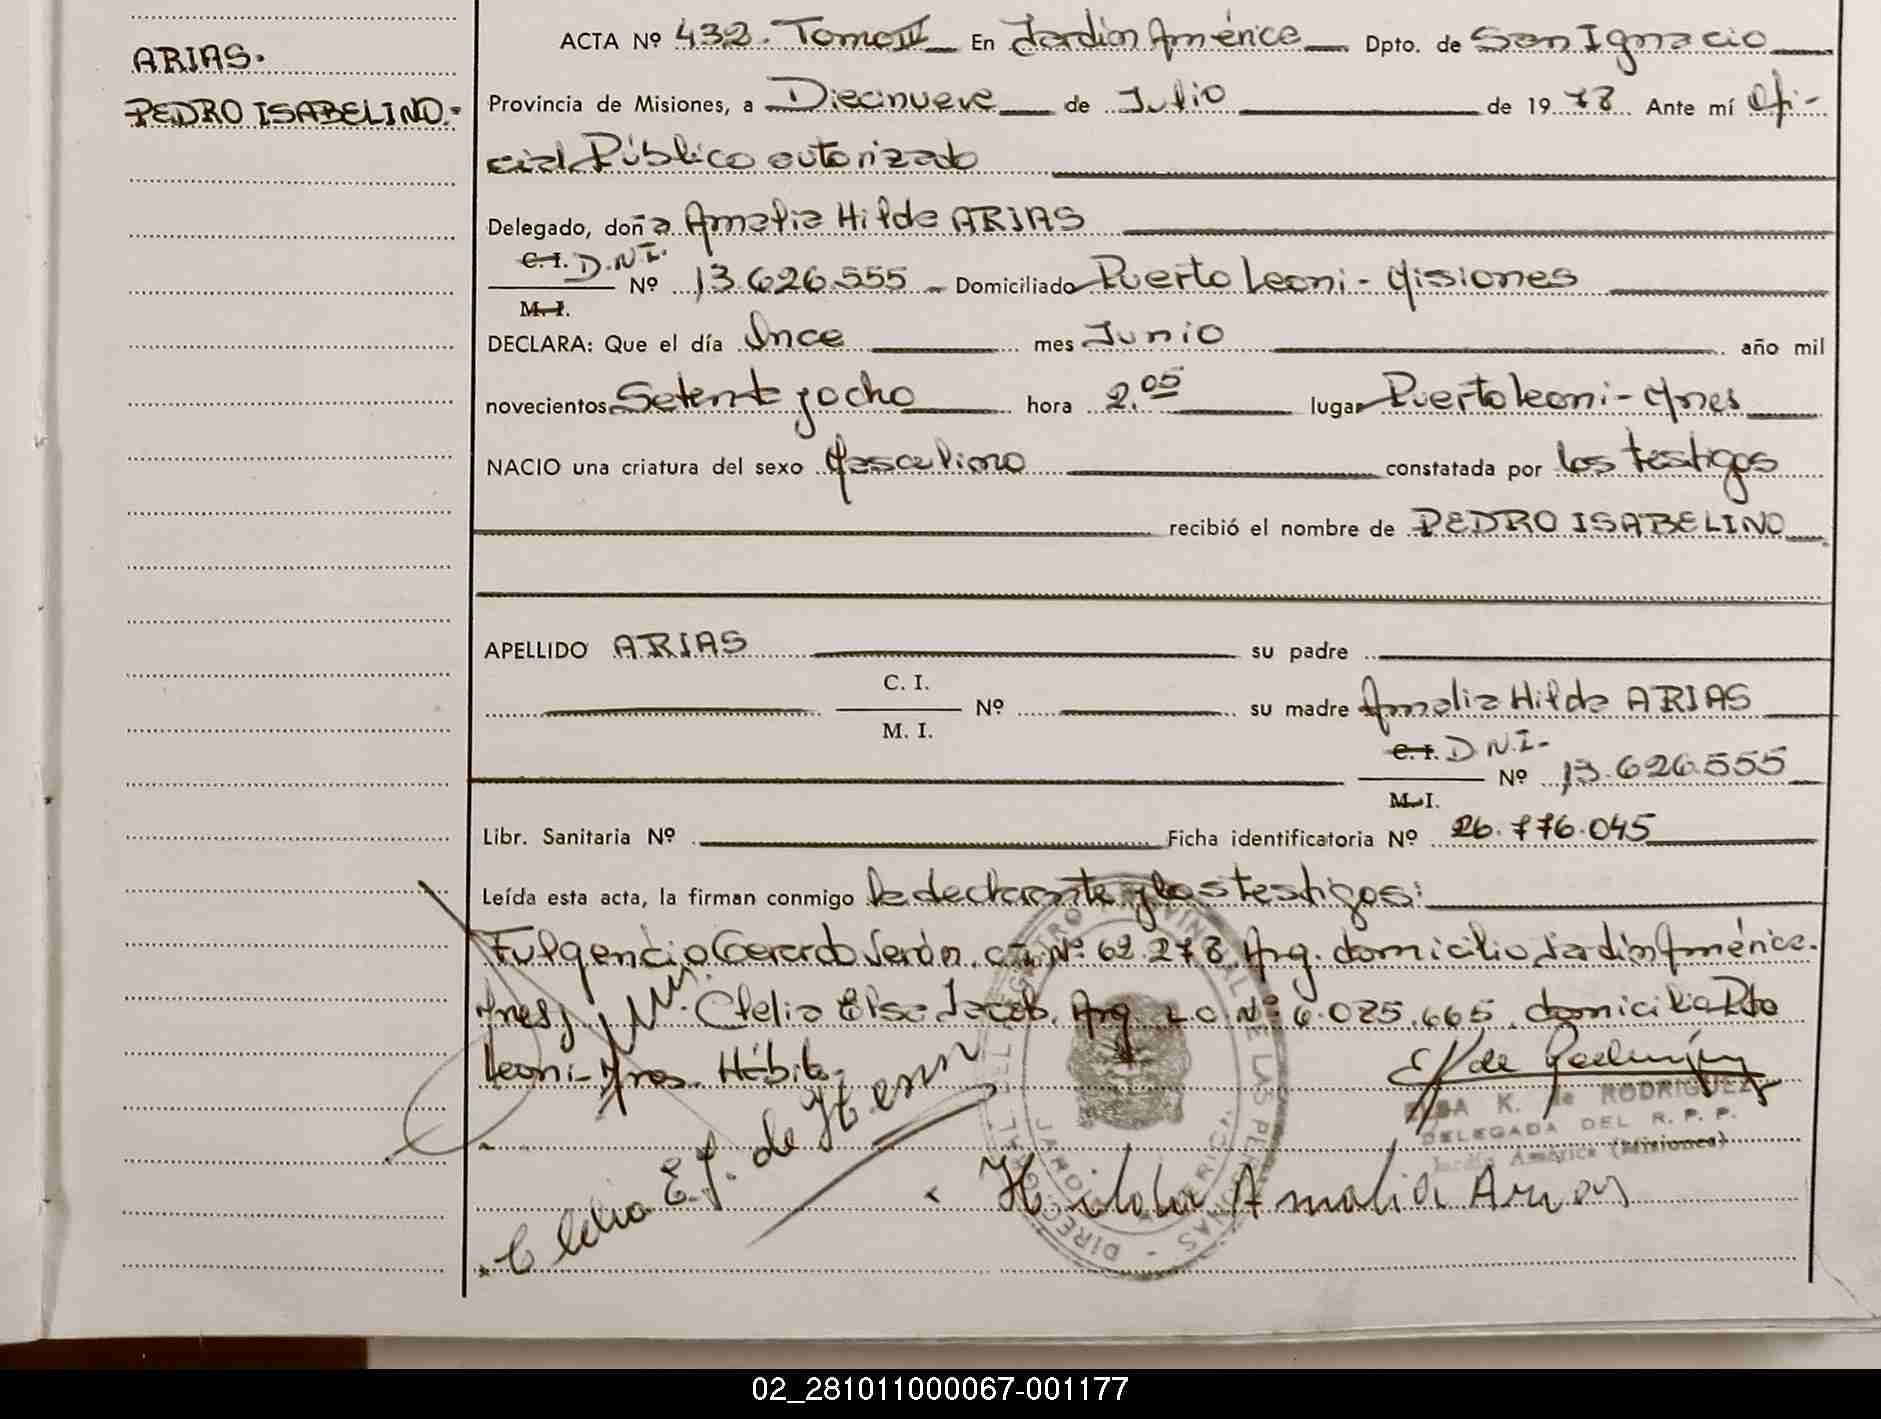 ARIAS.
PEDRO ISABELINO.-
ACTA Nº 432. Tomo II En Jardin América Dpto. de San Ignacio
Provincia de Misiones, a Diecinueve de Julio de 1978 Ante mí Ofi-
cial Público autorizado
Delegado, doña Amelia Hilda ARIAS
C. I. D.N.I. Nº 13.626.555 - Domiciliado Puerto Leoni - Misiones
M. I.
DECLARA: Que el día Once mes Junio año mil
novecientos Setenta y ocho hora 2.05 lugar Puerto Leoni - Mnes
NACIO una criatura del sexo Masculino constatada por los testigos
recibió el nombre de PEDRO ISABELINO
APELLIDO ARIAS su padre
C. I. Nº su madre Amalia Hilda ARIAS
M. I.
C. I. D N.I.- Nº 13.626.555
M. I.
Libr. Sanitaria Nº Ficha identificatoria Nº 26.776.045
Leída esta acta, la firman conmigo la declarante y los testigos:
Fulgencio Gerardo Serón. C.I. Nº 62.278. Arg. domicilio Jardín América.
Mnes y Clelia Elsa Jacob. Arg. L.C. Nº 6.025.665. domicilia Pto
Leoni - Mnes. Hábil.
ELSA K. de RODRIGUEZ
DELEGADA DEL R. P. P.
Jardín América (Misiones)
Clelia E. J. de
Hilda Amalia Arias
02_281011000067-001177